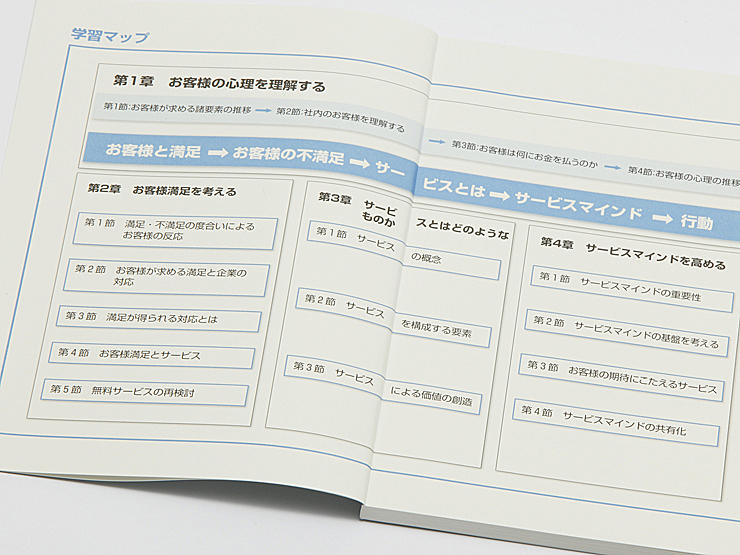 学習マップ
第1章 お客様の心理を理解する
第1節:お客様が求める諸要素の推移 → 第2節:社内のお客様を理解する → 第3節:お客様は何にお金を払うのか → 第4節:お客様の心理の推移
お客様と満足 → お客様の不満足 → サービスとは → サービスマインド → 行動
第2章 お客様満足を考える
第1節 満足・不満足の度合いによる
お客様の反応
第2節 お客様が求める満足と企業の
対応
第3節 満足が得られる対応とは
第4節 お客様満足とサービス
第5節 無料サービスの再検討
第3章 サービスとはどのような
ものか
第1節 サービスの概念
第2節 サービスを構成する要素
第3節 サービスによる価値の創造
第4章 サービスマインドを高める
第1節 サービスマインドの重要性
第2節 サービスマインドの基盤を考える
第3節 お客様の期待にこたえるサービス
第4節 サービスマインドの共有化